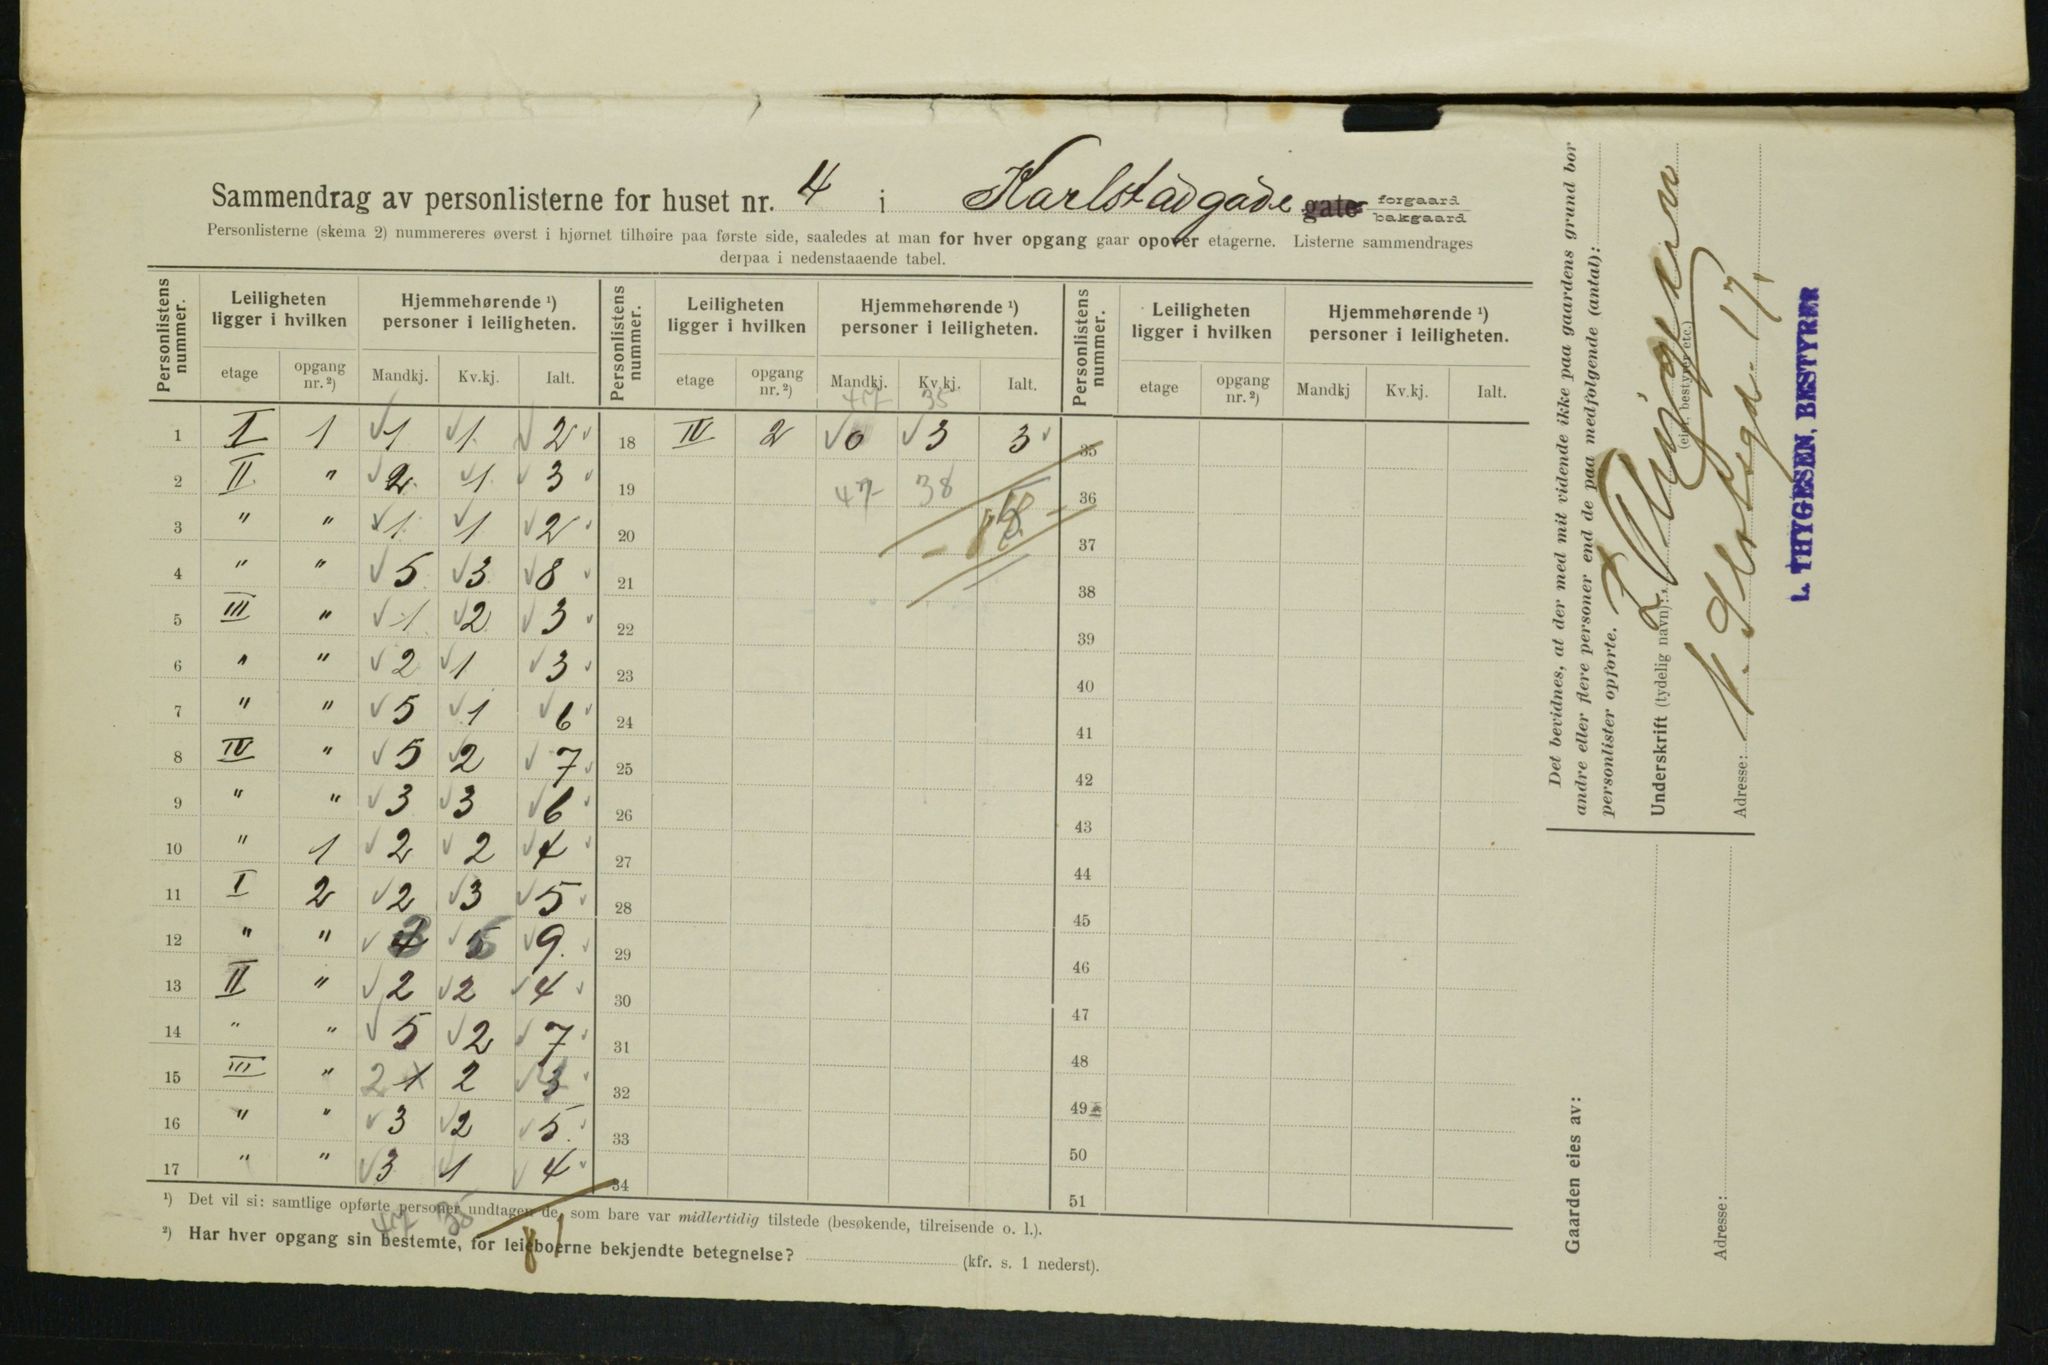 Sammendrag av personlisterne for huset nr. 4 i Karlstadgade gate forgaard bakgaard
Personlisterne (skema 2) nummereres øverst i hjørnet tilhøire paa første side, saaledes at man for hver opgang gaar opover etagerne. Listerne sammendrages
derpaa i nedenstaaende tabel.
Personlistens nummer. Leiligheten ligger i hvilken Hjemmehørende ¹) personer i leiligheten. Personlistens nummer. Leiligheten ligger i hvilken Hjemmehørende ¹) personer i leiligheten. Personlistens nummer. Leiligheten ligger i hvilken Hjemmehørende ¹) personer i leiligheten.
etage opgang nr. ²) Mandkj. Kv.kj. Ialt. etage opgang nr. ²) Mandkj. Kv.kj. Ialt. etage opgang nr. ²) Mandkj Kv.kj. Ialt.
47 35
1 I 1 1 1 2 18 IV 2 0 3 3 35
2 II " 2 1 3 19 47 38 36
3 " " 1 1 2 20 37
4 " " 5 3 8 21 38
5 III " 1 2 3 22 39
6 " " 2 1 3 23 40
7 " " 5 1 6 24 41
8 IV " 5 2 7 25 42
9 " " 3 3 6 26 43
10 " 1 2 2 4 27 44
11 I 2 2 3 5 28 45
12 " " 9. 29 46
13 II " 2 2 4 30 47
14 " " 5 2 7 31 48
15 III " 2 1 2 3 32 49
16 " " 3 2 5. 33 50
17 " " 3 1 4 34 51
¹) Det vil si: samtlige opførte personer undtagen de, som bare var midlertidig tilstede (besøkende, tilreisende o. l.).
47 35 81
²) Har hver opgang sin bestemte, for leieboerne bekjendte betegnelse? (kfr. s. 1 nederst).
Det bevidnes, at der med mit vidende ikke paa gaardens grund bor
andre eller flere personer end de paa medfølgende (antal):
personlister opførte.
Underskrift (tydelig navn): L. Thygesen
(eier, bestyrer etc.)
Adresse: N. Slotsgd. 17.
L. THYGESEN, BESTYRER
Gaarden eies av:
Adresse: